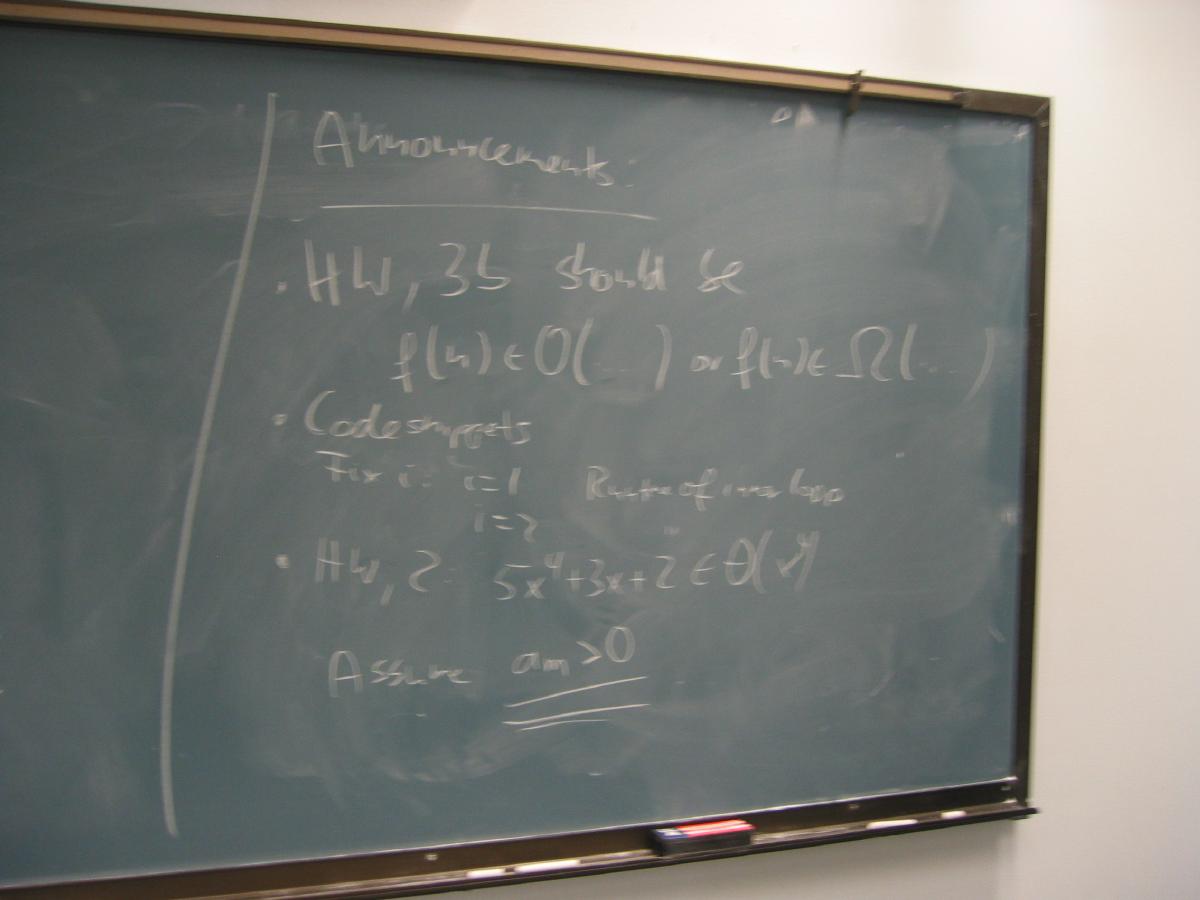 Announcements:
· HW, 3b should be
f(n) ∈ O(...) or f(n) ∈ Ω(...)
· Code snippets
Fix i: i=1 Runtime of inner loop
i=2 "
· HW, 2: 5x⁴+3x+2 ∈ Θ(x⁴)
Assume aₘ>0